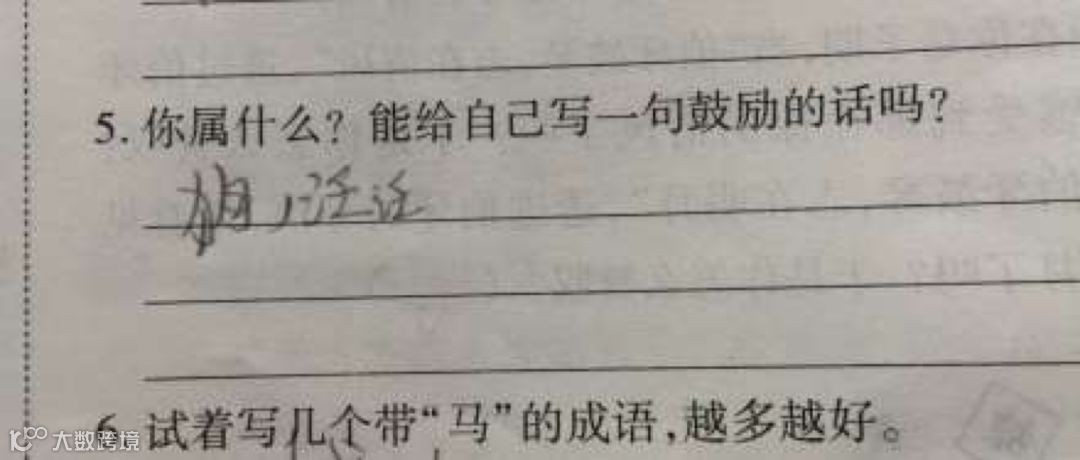 5. 你属什么？能给自己写一句鼓励的话吗？
6. 试着写几个带“马”的成语，越多越好。
大数跨境